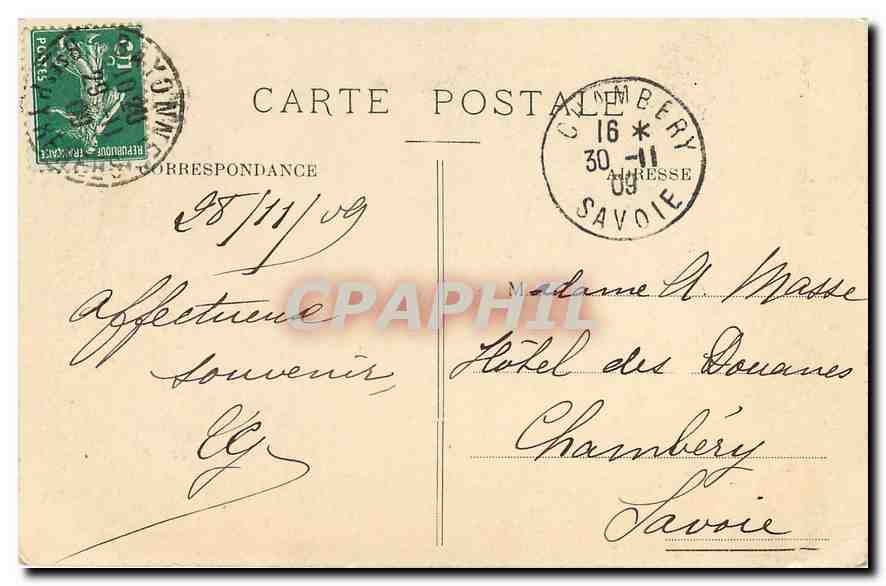 CARTE POSTALE
CORRESPONDANCE
ADRESSE
5c
POSTES
REPUBLIQUE FRANÇAISE
BAYONNE
CHAMBERY
16 *
30 -11
09
SAVOIE
28/11/09
Affectueux
souvenir,
Madame A. Masse
Hôtel des Douanes
Chambéry
Savoie
CPAPHIL